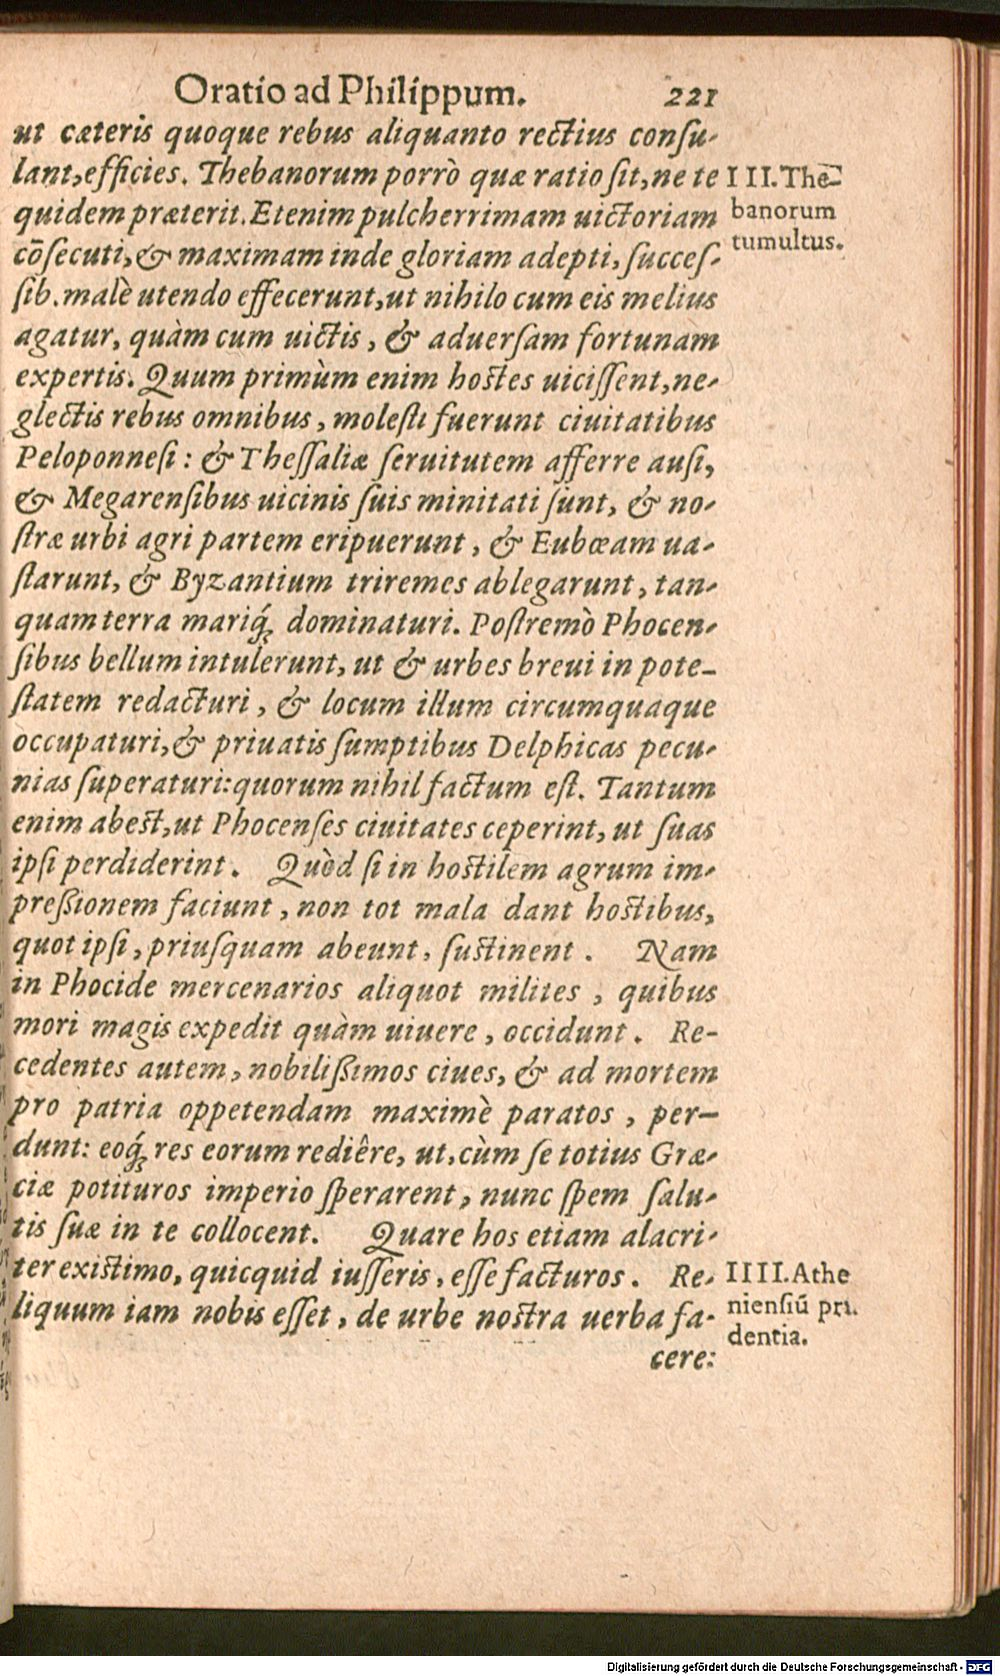 Oratio ad Philippum. 221
ut cæteris quoque rebus aliquanto rectius consu-
lant, efficies. Thebanorum porrò quæ ratio sit, ne te
quidem præterit. Etenim pulcherrimam uictoriam
cōsecuti, & maximam inde gloriam adepti, succes-
sib. malè utendo effecerunt, ut nihilo cum eis melius
agatur, quàm cum uictis, & aduersam fortunam
expertis. Quum primùm enim hostes uicissent, ne-
glectis rebus omnibus, molesti fuerunt ciuitatibus
Peloponnesi: & Thessaliæ seruitutem afferre ausi,
& Megarensibus uicinis suis minitati sunt, & no-
stræ urbi agri partem eripuerunt, & Eubœam ua-
starunt, & Byzantium triremes ablegarunt, tan-
quam terra mariq́; dominaturi. Postremò Phocen-
sibus bellum intulerunt, ut & urbes breui in pote-
statem redacturi, & locum illum circumquaque
occupaturi, & priuatis sumptibus Delphicas pecu-
nias superaturi: quorum nihil factum est. Tantum
enim abest, ut Phocenses ciuitates ceperint, ut suas
ipsi perdiderint. Quòd si in hostilem agrum im-
preßionem faciunt, non tot mala dant hostibus,
quot ipsi, priusquam abeunt, sustinent. Nam
in Phocide mercenarios aliquot milites, quibus
mori magis expedit quàm uiuere, occidunt. Re-
cedentes autem, nobilißimos ciues, & ad mortem
pro patria oppetendam maximè paratos, per-
dunt: eoq́; res eorum rediêre, ut, cùm se totius Græ-
ciæ potituros imperio sperarent, nunc spem salu-
tis suæ in te collocent. Quare hos etiam alacri-
ter existimo, quicquid iusseris, esse facturos. Re-
liquum iam nobis esset, de urbe nostra uerba fa-
cere:
III. Thē-
banorum
tumultus.
IIII. Athe
niensiū pru
dentia.
Digitalisierung gefördert durch die Deutsche Forschungsgemeinschaft - DFG